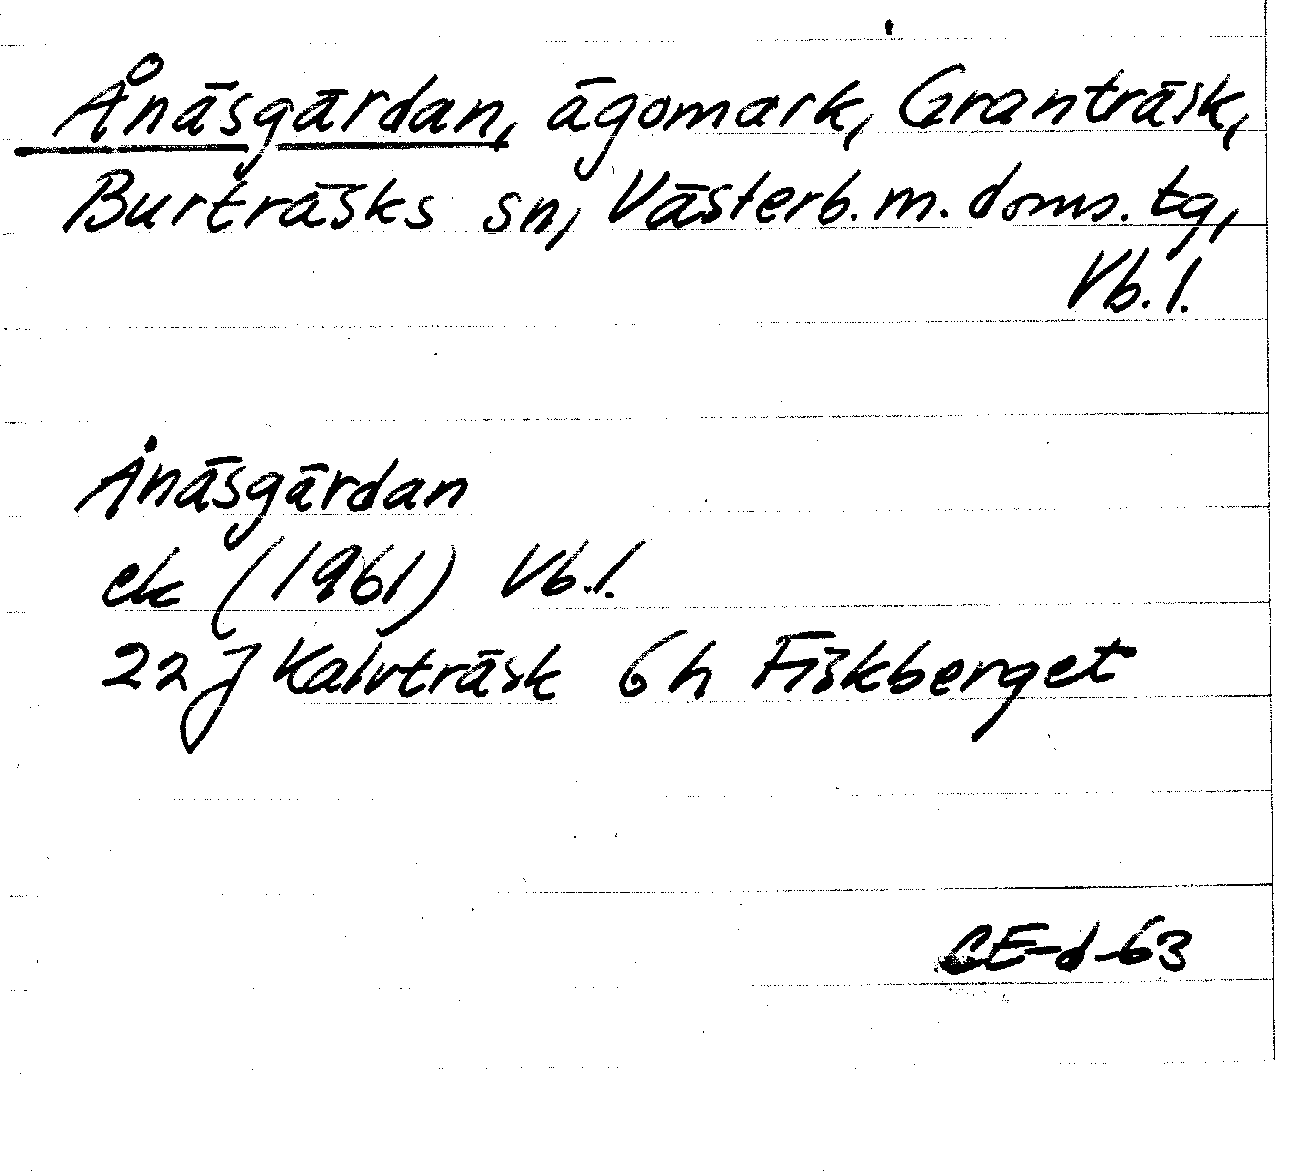 Ånäsgärdan, ägomark, Granträsk,
Burträsks sn, Västerb. m. doms. tg,
Vb. l.
Ånäsgärdan
ek (1961) Vb. l.
22 J Kalvträsk 6h Fiskberget
CE-d-63